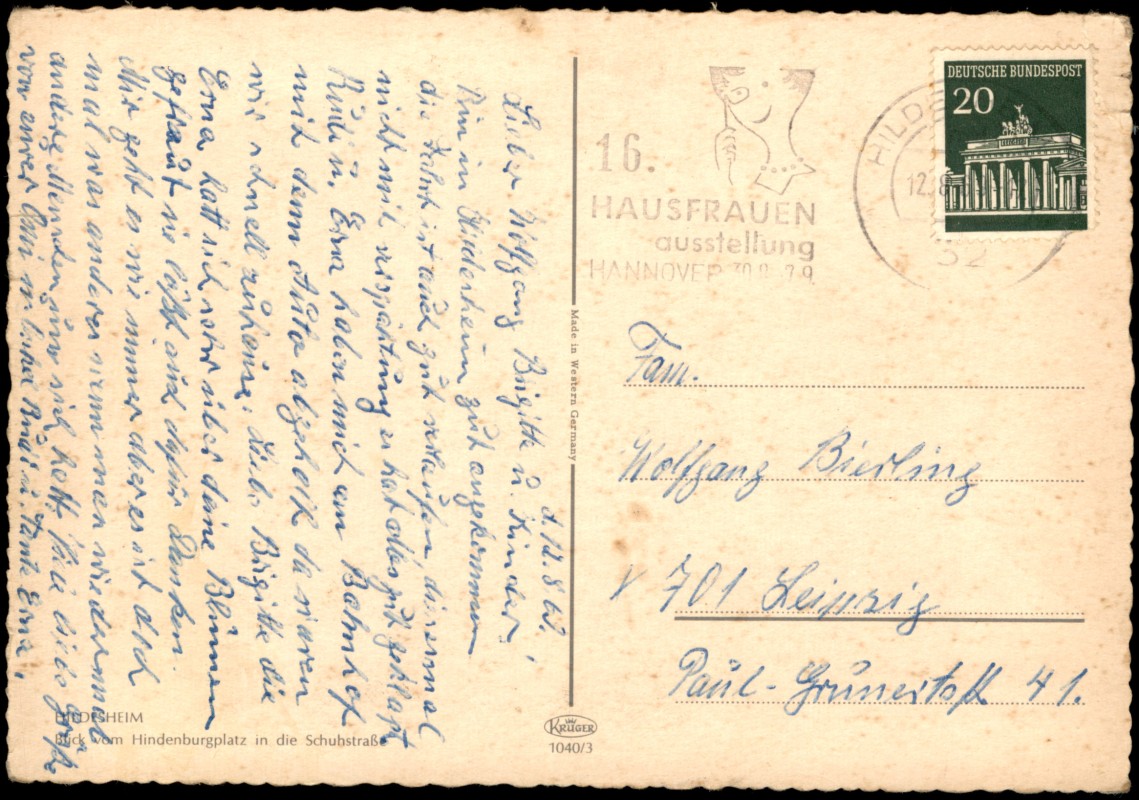 d. 12. 8 
Lieber Wolfgang Birgitte u. Kinder!
Bin in Hildesheim gut angekommen
die Fahrt ist auch gut verlaufen diesmal
nicht mit verspäktung es hat alles gut geklapt
Rudi u. Erna haben mich am Bahnhof
mit dem Auto abgeholt da waren
wir schnell zuhause. Lieb. Birgitte die
Erna hatt sich sehr über deine Blumen
gefraut sie läßt auch dafür Danken.
Mir geht es wie immer aber es ist doch
mal was anderes wenn man wiedermal
andere Menschen um sich hatt. Viele liebe Grüße
von eurer Omi u. Rudi u. Tante Erna.
HILDESHEIM
Blick vom Hindenburgplatz in die Schuhstraße
Made in Western Germany
KRÜGER
1040/3
16.
HAUSFRAUEN
ausstellung
HANNOVER 30.8.-7.9
HILDE
12.8
32
DEUTSCHE BUNDESPOST
20
Fam.
Wolfgang Bierling
701 Leipzig
Paul-Grünertstr 41.